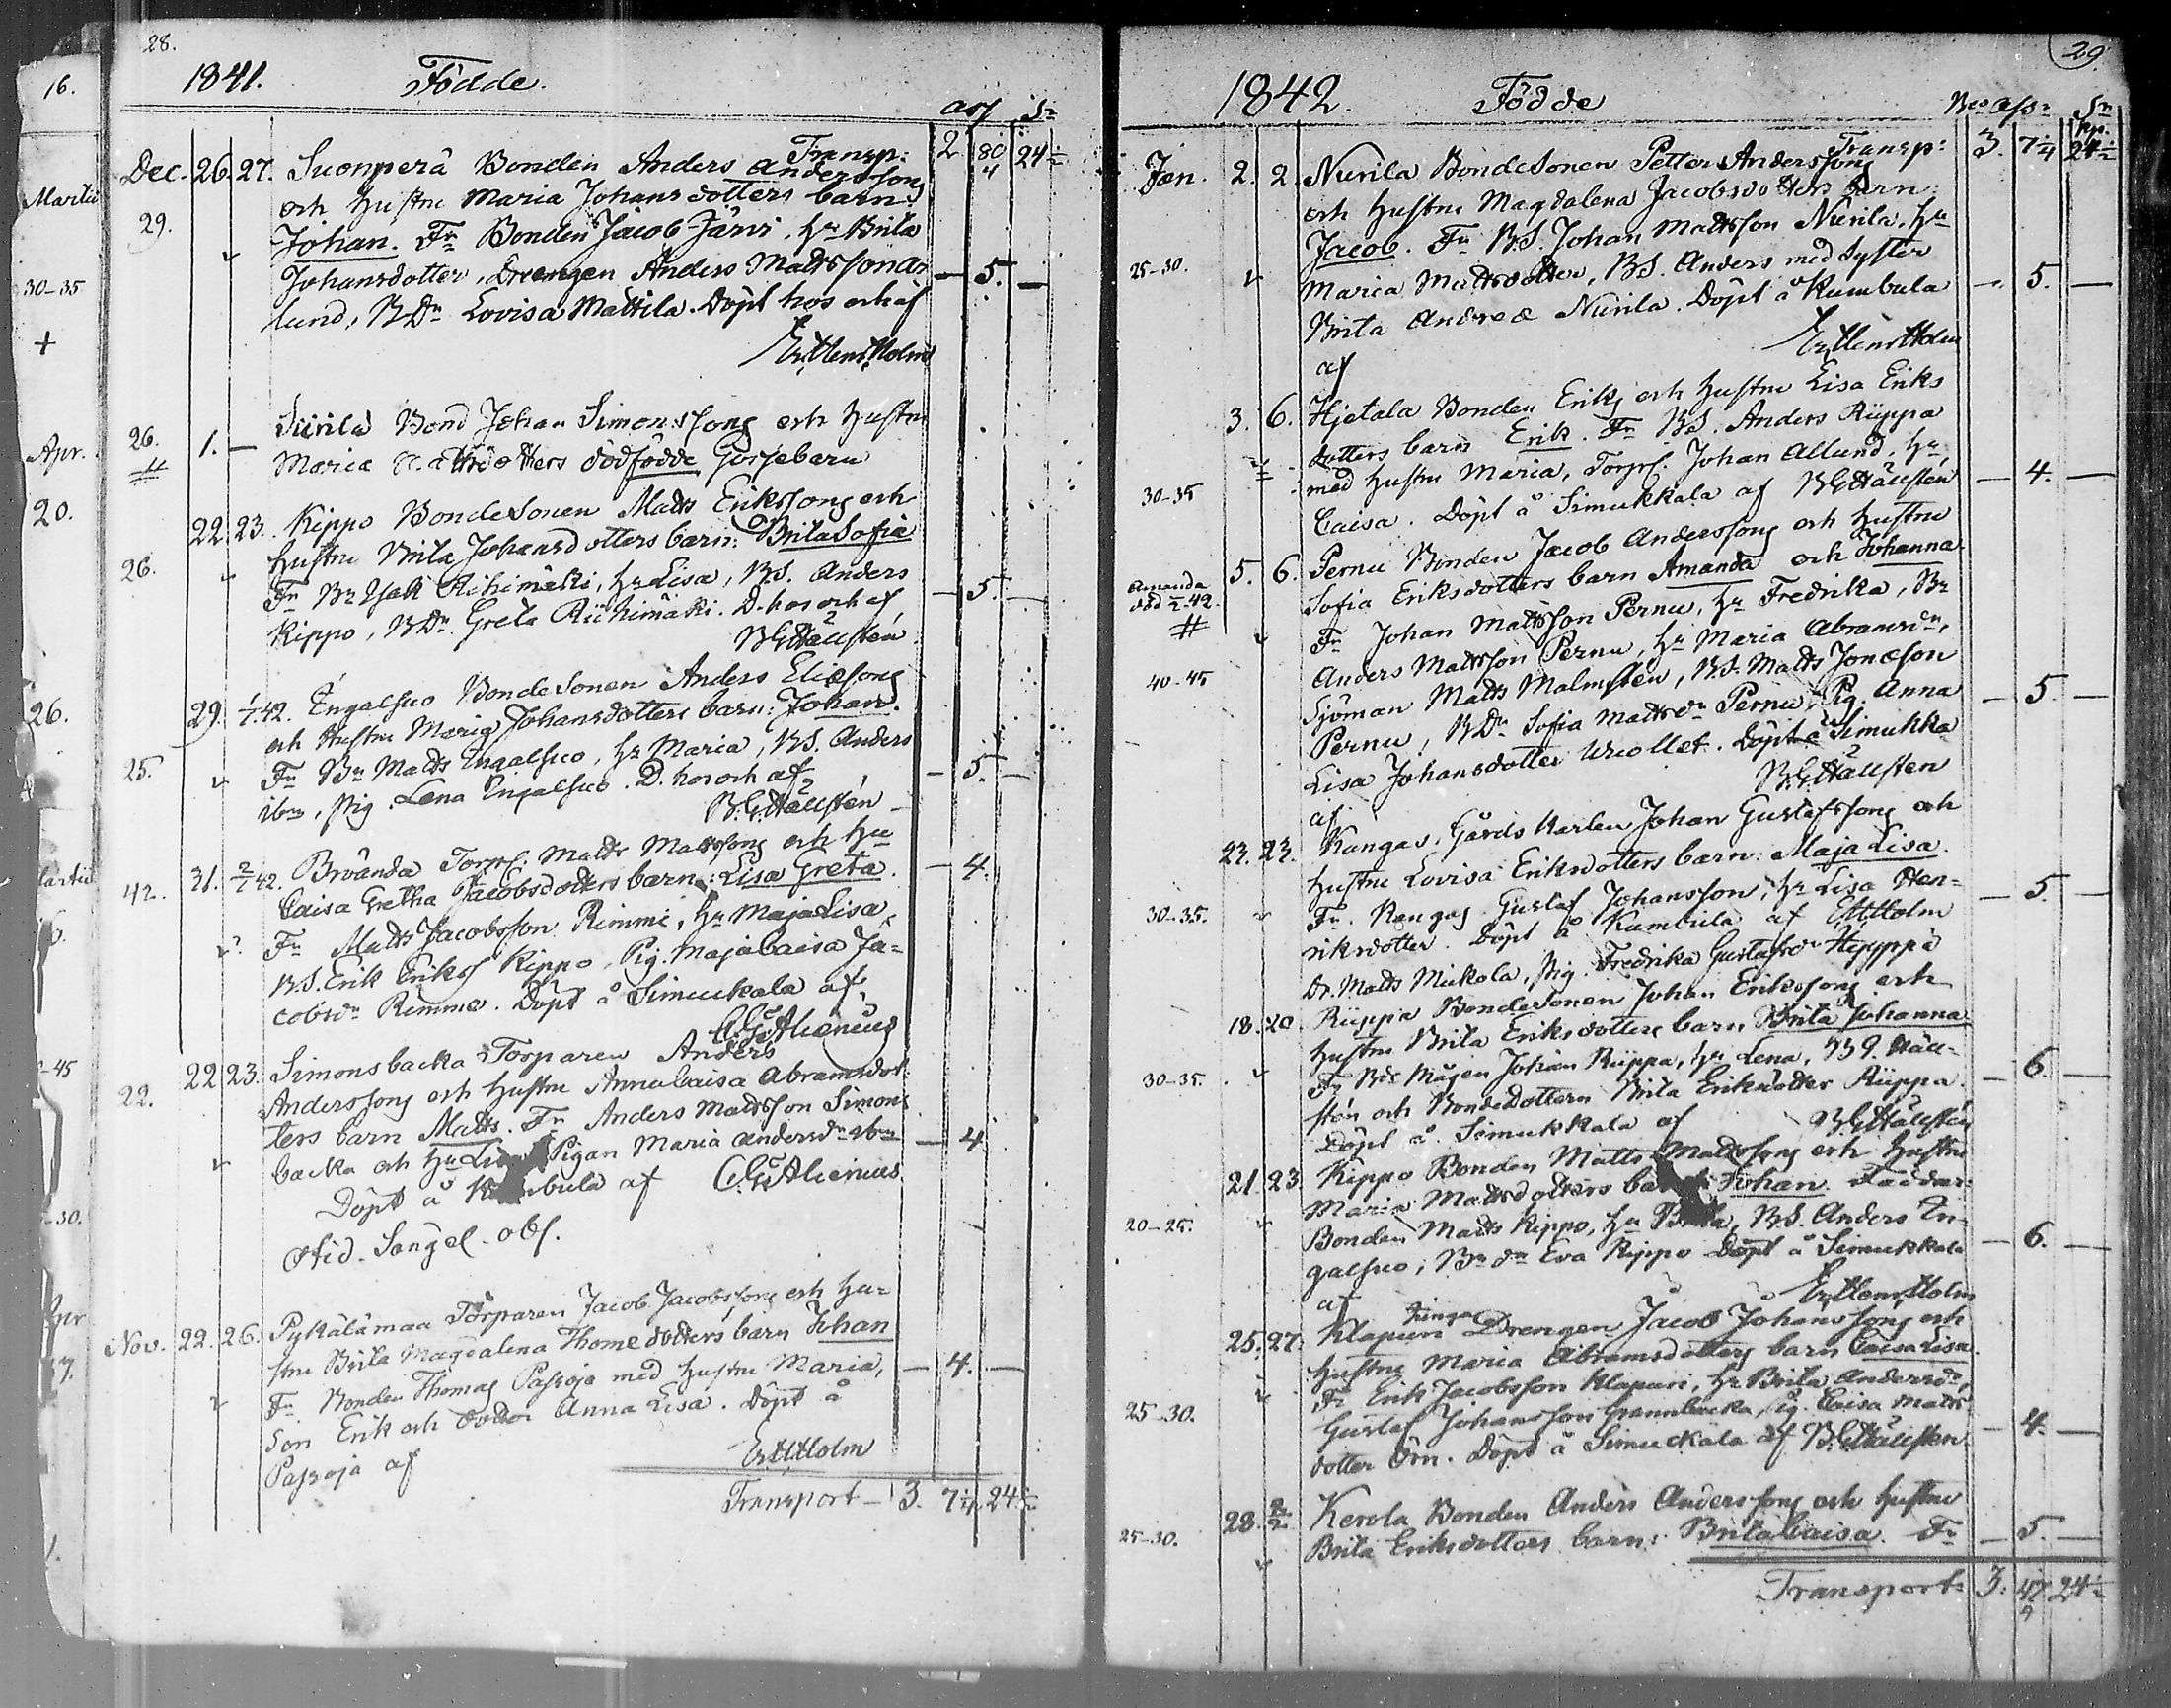 28.
1841. Födde.
Transp: 2 80 24
Dec. 26. 27. Suonperä Bonden Anders Anderssons
29. och Hustru Maria Johansdotters barn:
Johan. Fr Bonden Jacob Järvi, Hu Brita
Johansdotter, Drengen Anders Mattsson
lund, BDr Lovisa Mattila. Döpt hos och af — 5. —
Er: Henr: Holm
26. 1. — Bond Johan Simonssons och Hustru
Maria dödfödde Gossebarn
22 23. Kippo Bondesonen Matts Erikssons och
26. Hustru Brita Johansdotters barn: Brita Sofia
Fr Br Isak Riihimäki, Hu Lisa, BS. Anders
Kippo, BDr Greta Riihimäki. D. hos och af — 5. —
B.G. Hällsten
29. 1/1 42. Ingalsuo Bondesonen Anders Eliesons
och Hustru Maria Johansdotters barn: Johan.
25. Fr Br Matts Ingalsuo, Hu Maria, BS. Anders
ibm, Pig. Lena Ingalsuo. D. hos och af — 5. —
B.G. Hällstén
42. 31. 2/1 42. Brända Torp. Matts Matssons och Hu
Caisa Gretha Jacobsdotters barn: Lisa Greta. — 4.
Fr Matts Jacobsson Rimmi, Hu Maja Lisa,
B.S. Erik Eriks Kippo, Pig. Maja Caisa Ja-
cobsdr Rimmi. Döpt å Simuckala af
C.G. Alcenius
22. 22 23. Simonsbacka Torparen Anders
Anderssons och Hustru Anna Caisa Abramsdot-
ters barn Matts. Fr Anders Mattsson Simons
backa och Hu Pigan Maria Andersdr ibm — 4.
Döpt å af C.G. Alcenius.
Pykälämaa Torparen Jacob Jacobssons och Hu-
Nov. 22. 26. stru Brita Magdalena Thomedotters barn Johan
Fr Bonden Thomas Passoja med Hustru Maria, — 4. —
Son Erik och dotter Anna Lisa. Döpt å
Passoja af Er: H: Holm
Transport — 3. 7 24
29.
1842. Födde
Transp: 3. 7 24
Jan. 2. 2. Niinila Bondesonen Petter Anderssons
och Hustru Magdalena Jacobsdotters barn:
Jacob. Fr B.S. Johan Mattsson Niinila, Hu
25-30. Maria Mattsdotter, BS. Anders med Syster
Brita Andreæ Niinila. Döpt å Kumbula — 5. —
af Er: Henr: Holm
3. 6. Hjetala Bonden Eriks och Hustru Lisa Eriks
dotters barn Erik. Fr BS. Anders Riippa
30-35 med Hustru Maria, Torp. Johan Allund, Hu
Caisa. Döpt å Simukkala af B.G. Hällstén — 4. —
5. 6. Pernu Bonden Jacob Anderssons och Hustru
Amanda död 42. Sofia Eriksdotters barn Amanda och Johanna
Fr Johan Mattsson Pernu, Hu Fredrika, Br
Anders Mattsson Pernu, Hu Maria Abramsdr,
40-45 Sjöman Matts Malmstén, B.S. Matts Jonæson
Pernu, BDr Sofia Mattsdr Pernu, Pig. Anna — 5 —
Lisa Johansdotter. Döpt å Simukka
af B.G. Hällsten
23. 23. Kangas, Gårds Karlen Johan Gustafssons och
Hustru Lovisa Eriksdotters barn: Maja Lisa.
30-35. Fr. Kangas Gustaf Johansson, Hu Lisa Hen- — 5. —
riksdotter. Döpt å Kumbula af E H Holm
Dr. Matts Mickola, Pig. Fredrika Gustafsdr
18. 20. Riippa Bondesonen Johan Erikssons och
Hustru Brita Eriksdotters barn Brita Johanna
30-35. Fr Bde Mågen Johan Riippa, Hu Lena, B G. Häll-
stén och Bondedottern Brita Eriksdotter Riippa. — 6 —
Döpt å Simukkala af B.G. Hällstén
21. 23 Kippo Bonden Matts Mattssons och Hustru
Maria Mattsdotters barn: Johan. Faddrar:
20-25. Bonden Matts Kippo, Hu Brita, BS. Anders In-
galsuo, Br dr Eva Kippo Döpt å Simukkala — 6. —
af Er: Henr: Holm
25. 27. Klapuri Drengen Jacob Johanssons och
Hustru Maria Abramsdotters barn Caisa Lisa
Fr Erik Jacobsson Klapuri, Hu Brita Andersdr,
25-30. Gustaf Johansson Grannbacka, Pig. Caisa Matts-
dotter Örn. Döpt å Simuckala af B.G. Hällsten — 4. —
28. 2/2 Kerola Bonden Anders Anderssons och Hustru
25-30. Brita Eriksdotters barn: Brita Caisa. Fr — 5. —
Transport 3. 47 24
16.
Martii
30-35
+
Apr.
20.
26.